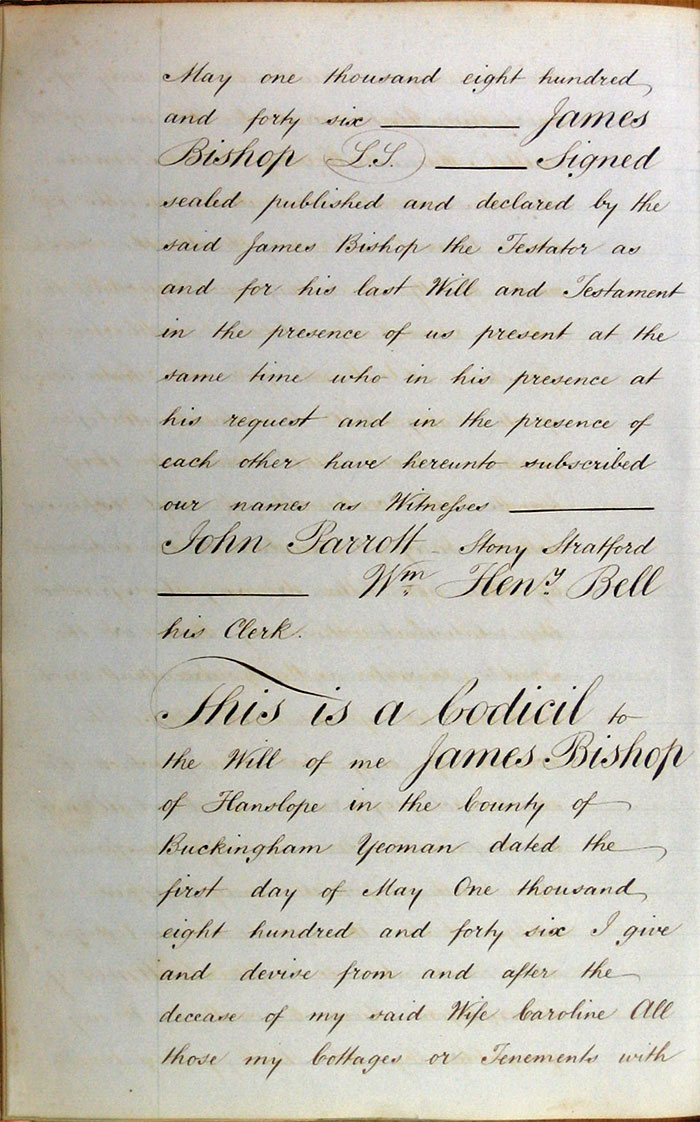 May one thousand eight hundred
and forty six ———— James
Bishop L.S. ——— Signed
sealed published and declared by the
said James Bishop the Testator as
and for his last Will and Testament
in the presence of us present at the
same time who in his presence at
his request and in the presence of
each other have hereunto subscribed
our names as Witneſses ————
John Parrott Stony Stratford
———— Wm Heny Bell
his Clerk.
This is a Codicil to
the Will of me James Bishop
of Hanslope in the County of
Buckingham Yeoman dated the
first day of May One thousand
eight hundred and forty six I give
and devise from and after the
decease of my said Wife Caroline All
those my Cottages or Tenements with